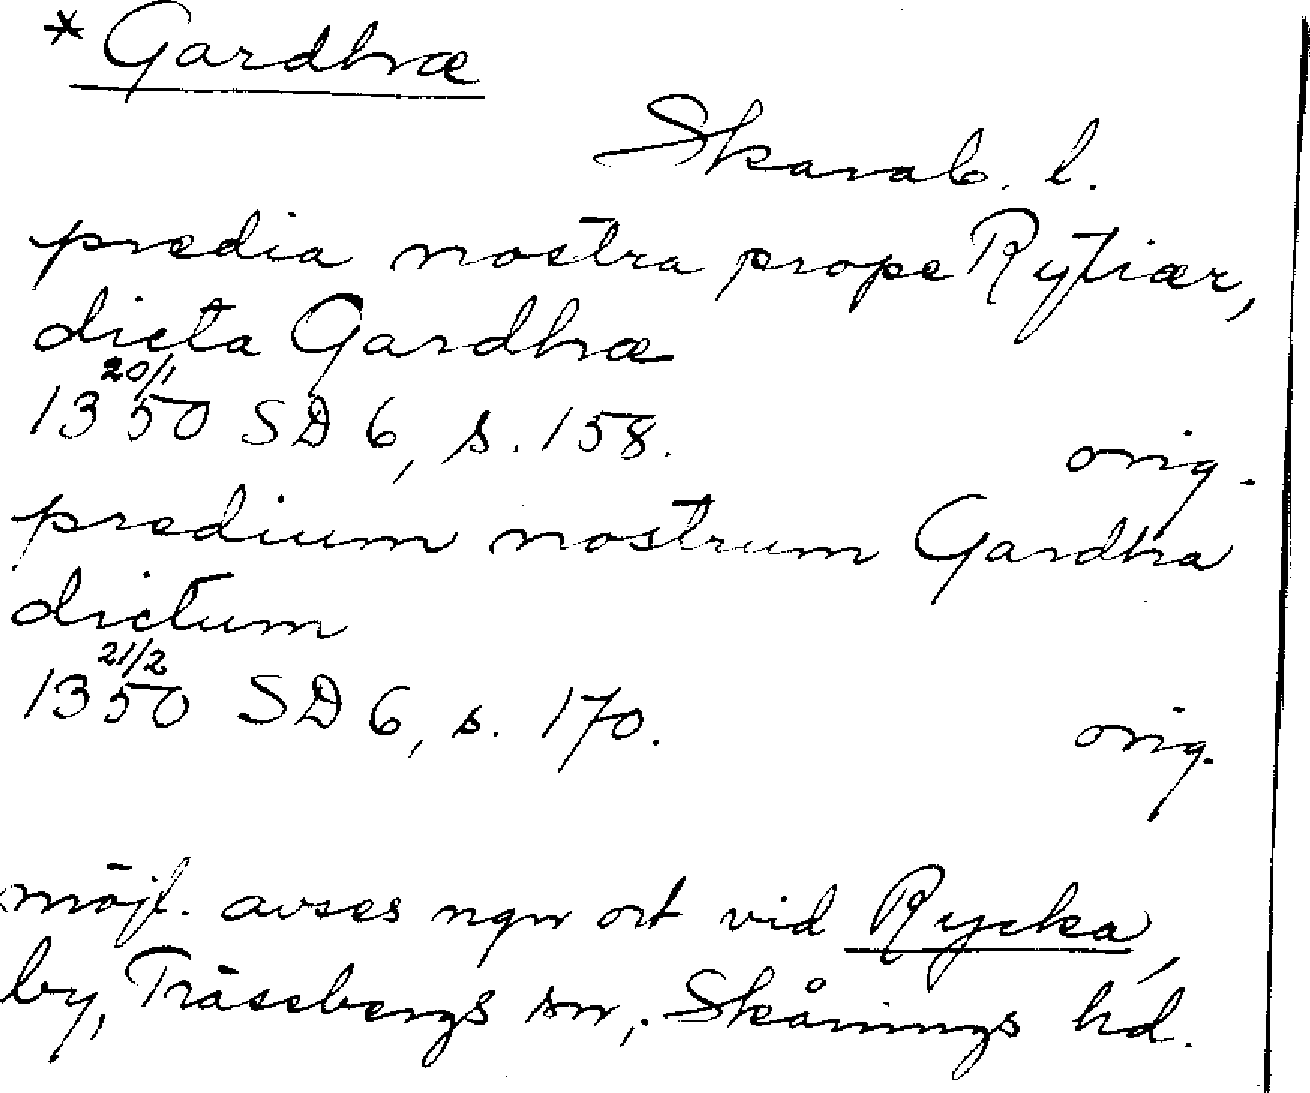 * Gardhræ
Skarab. l.
predia nostra prope Rytiær,
dicta Gardhræ
20/1
1350 SD 6, s. 158. orig.
predium nostrum Gardhra
dictum
21/2
1350 SD 6, s. 170. orig.
möjl. avses ngn ort vid Rycka,
by, Trässbergs sn, Skånings hd.